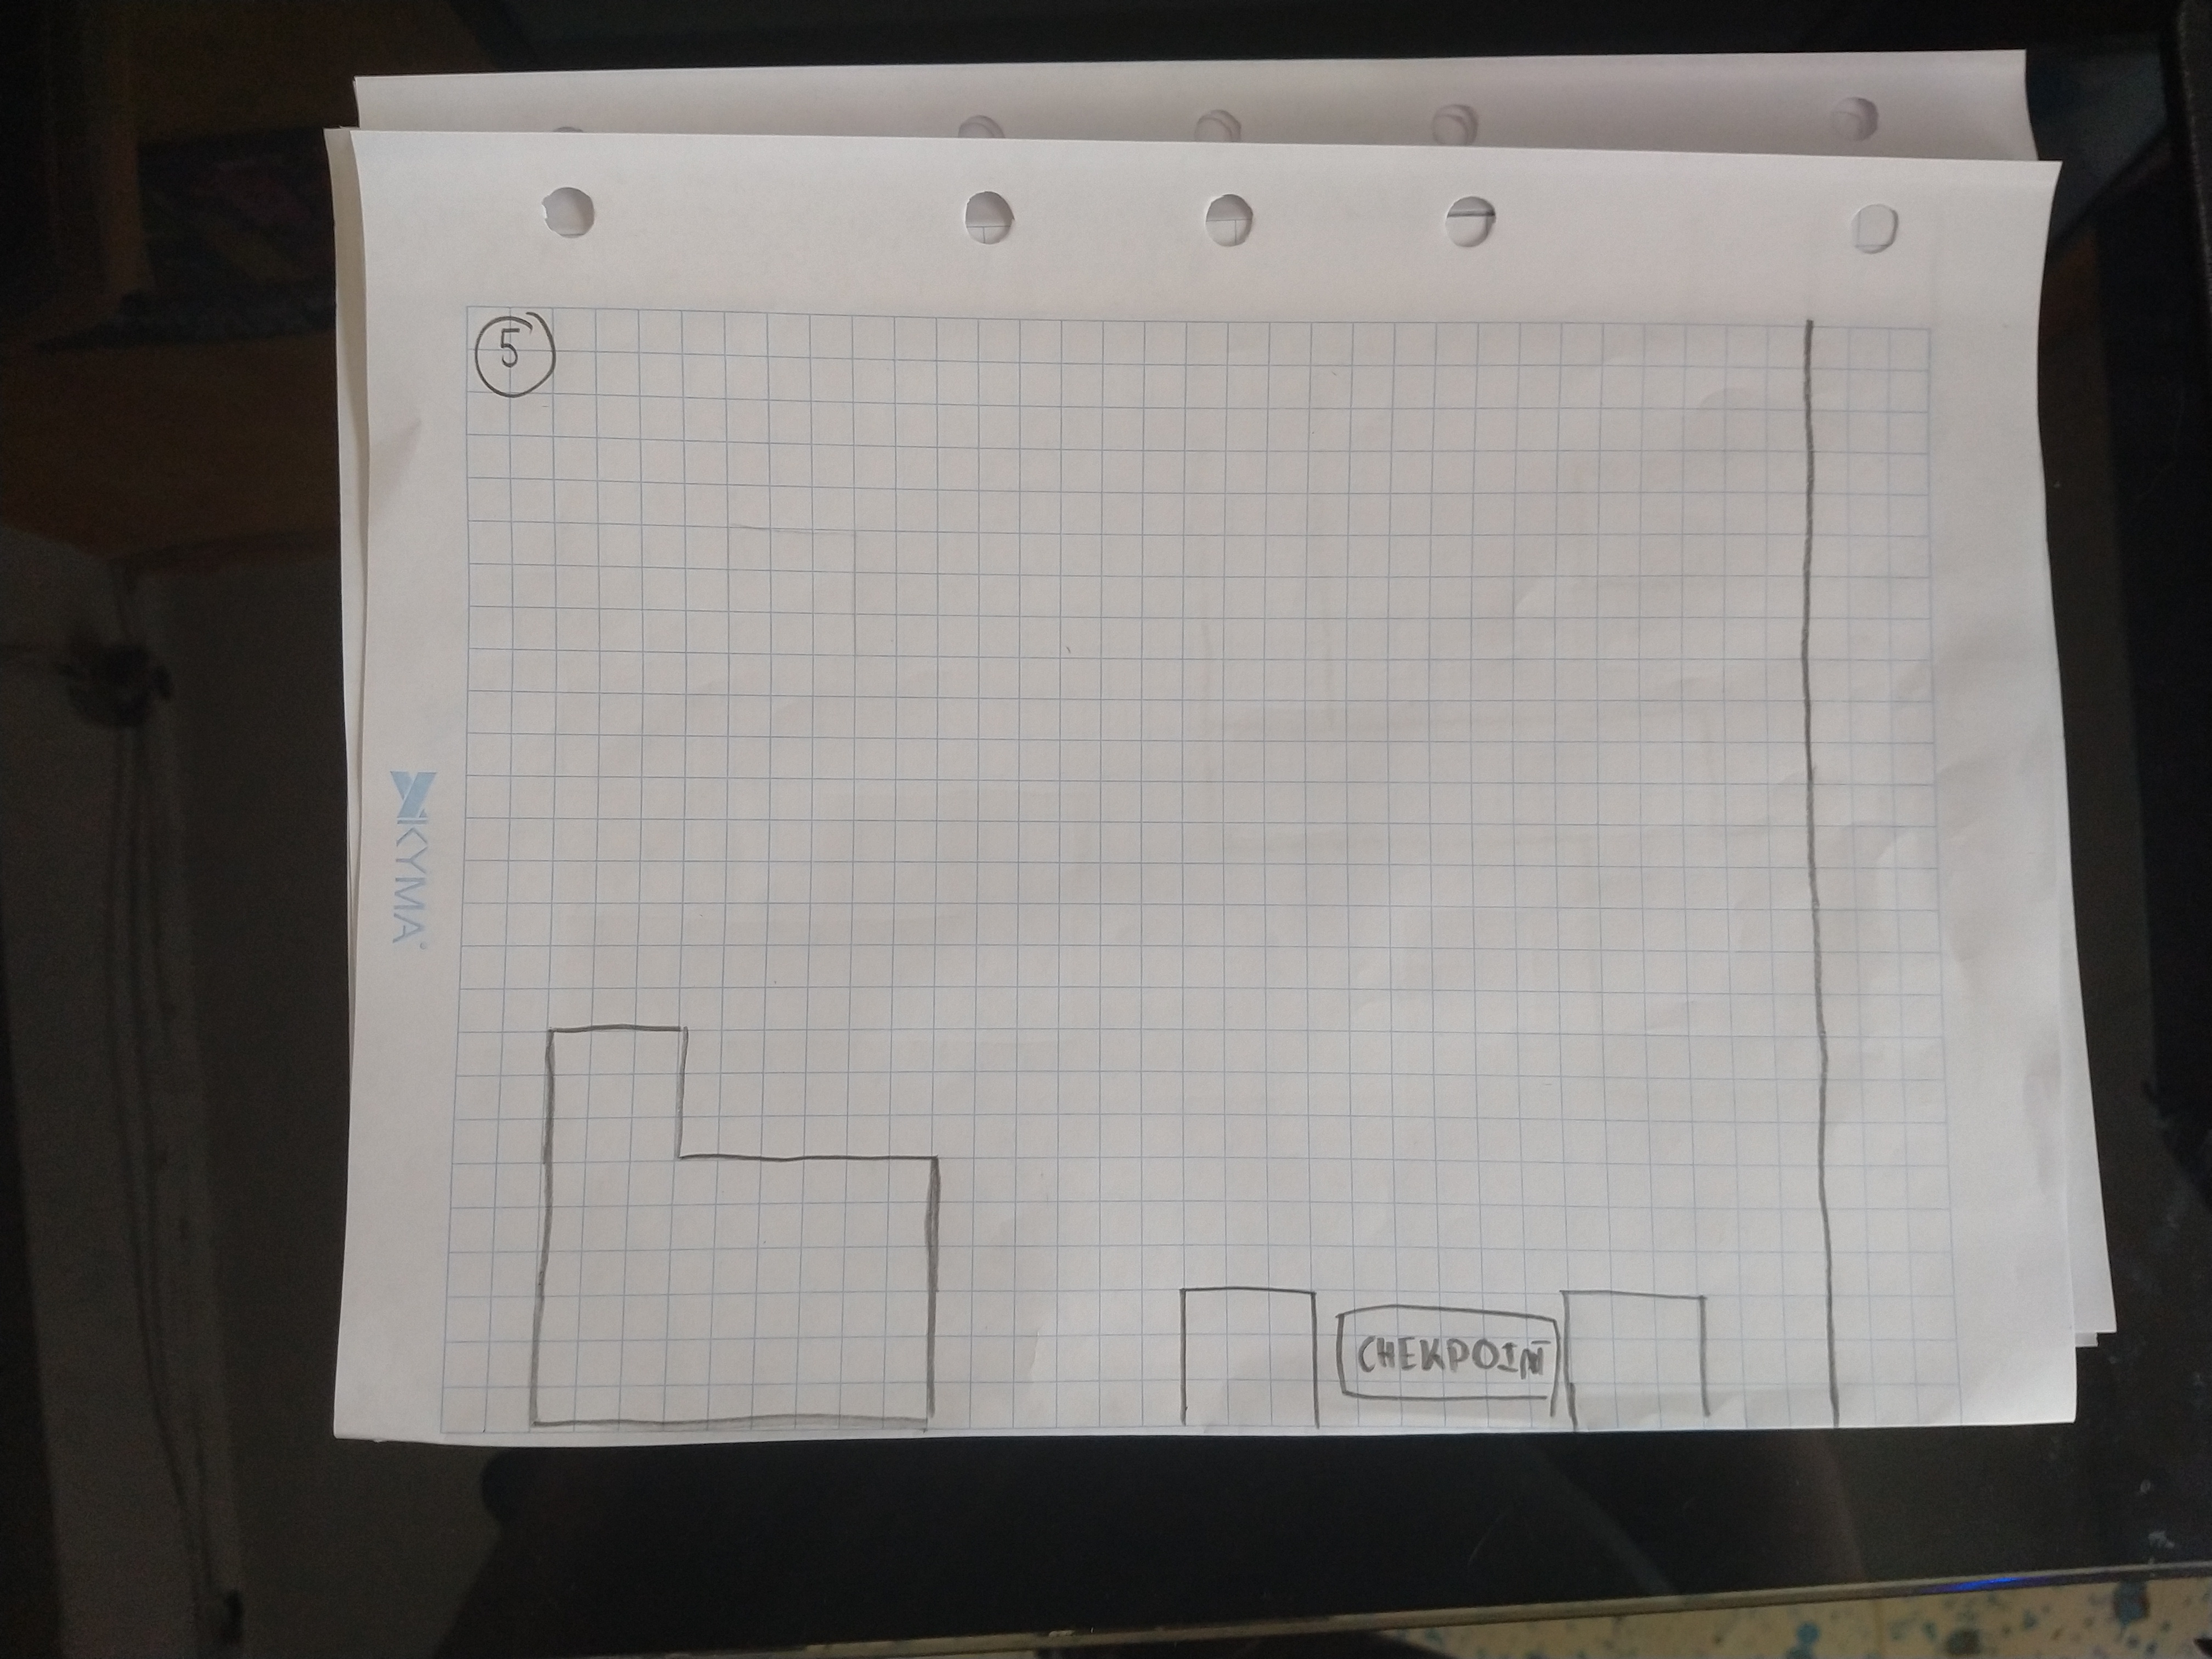 5
KYMA
CHEKPOINT